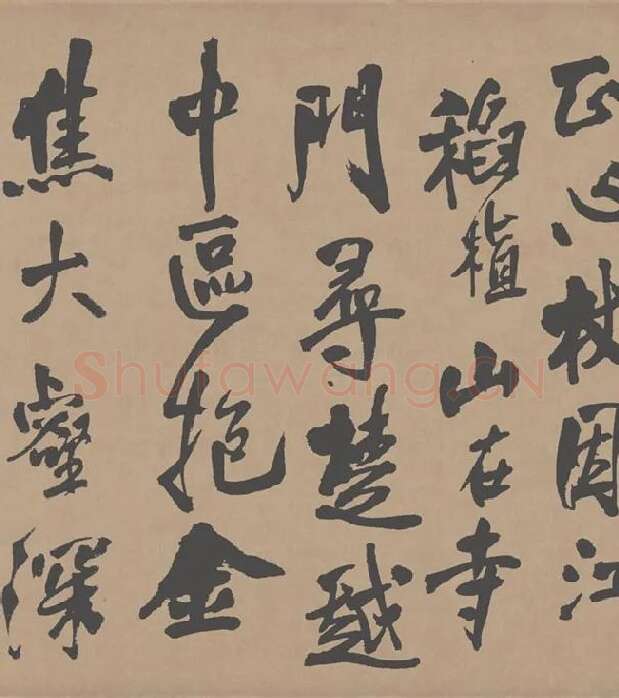 心杖因江
山在寺
門尋楚越
中區抱金
焦大壑深
Shufawang.CN